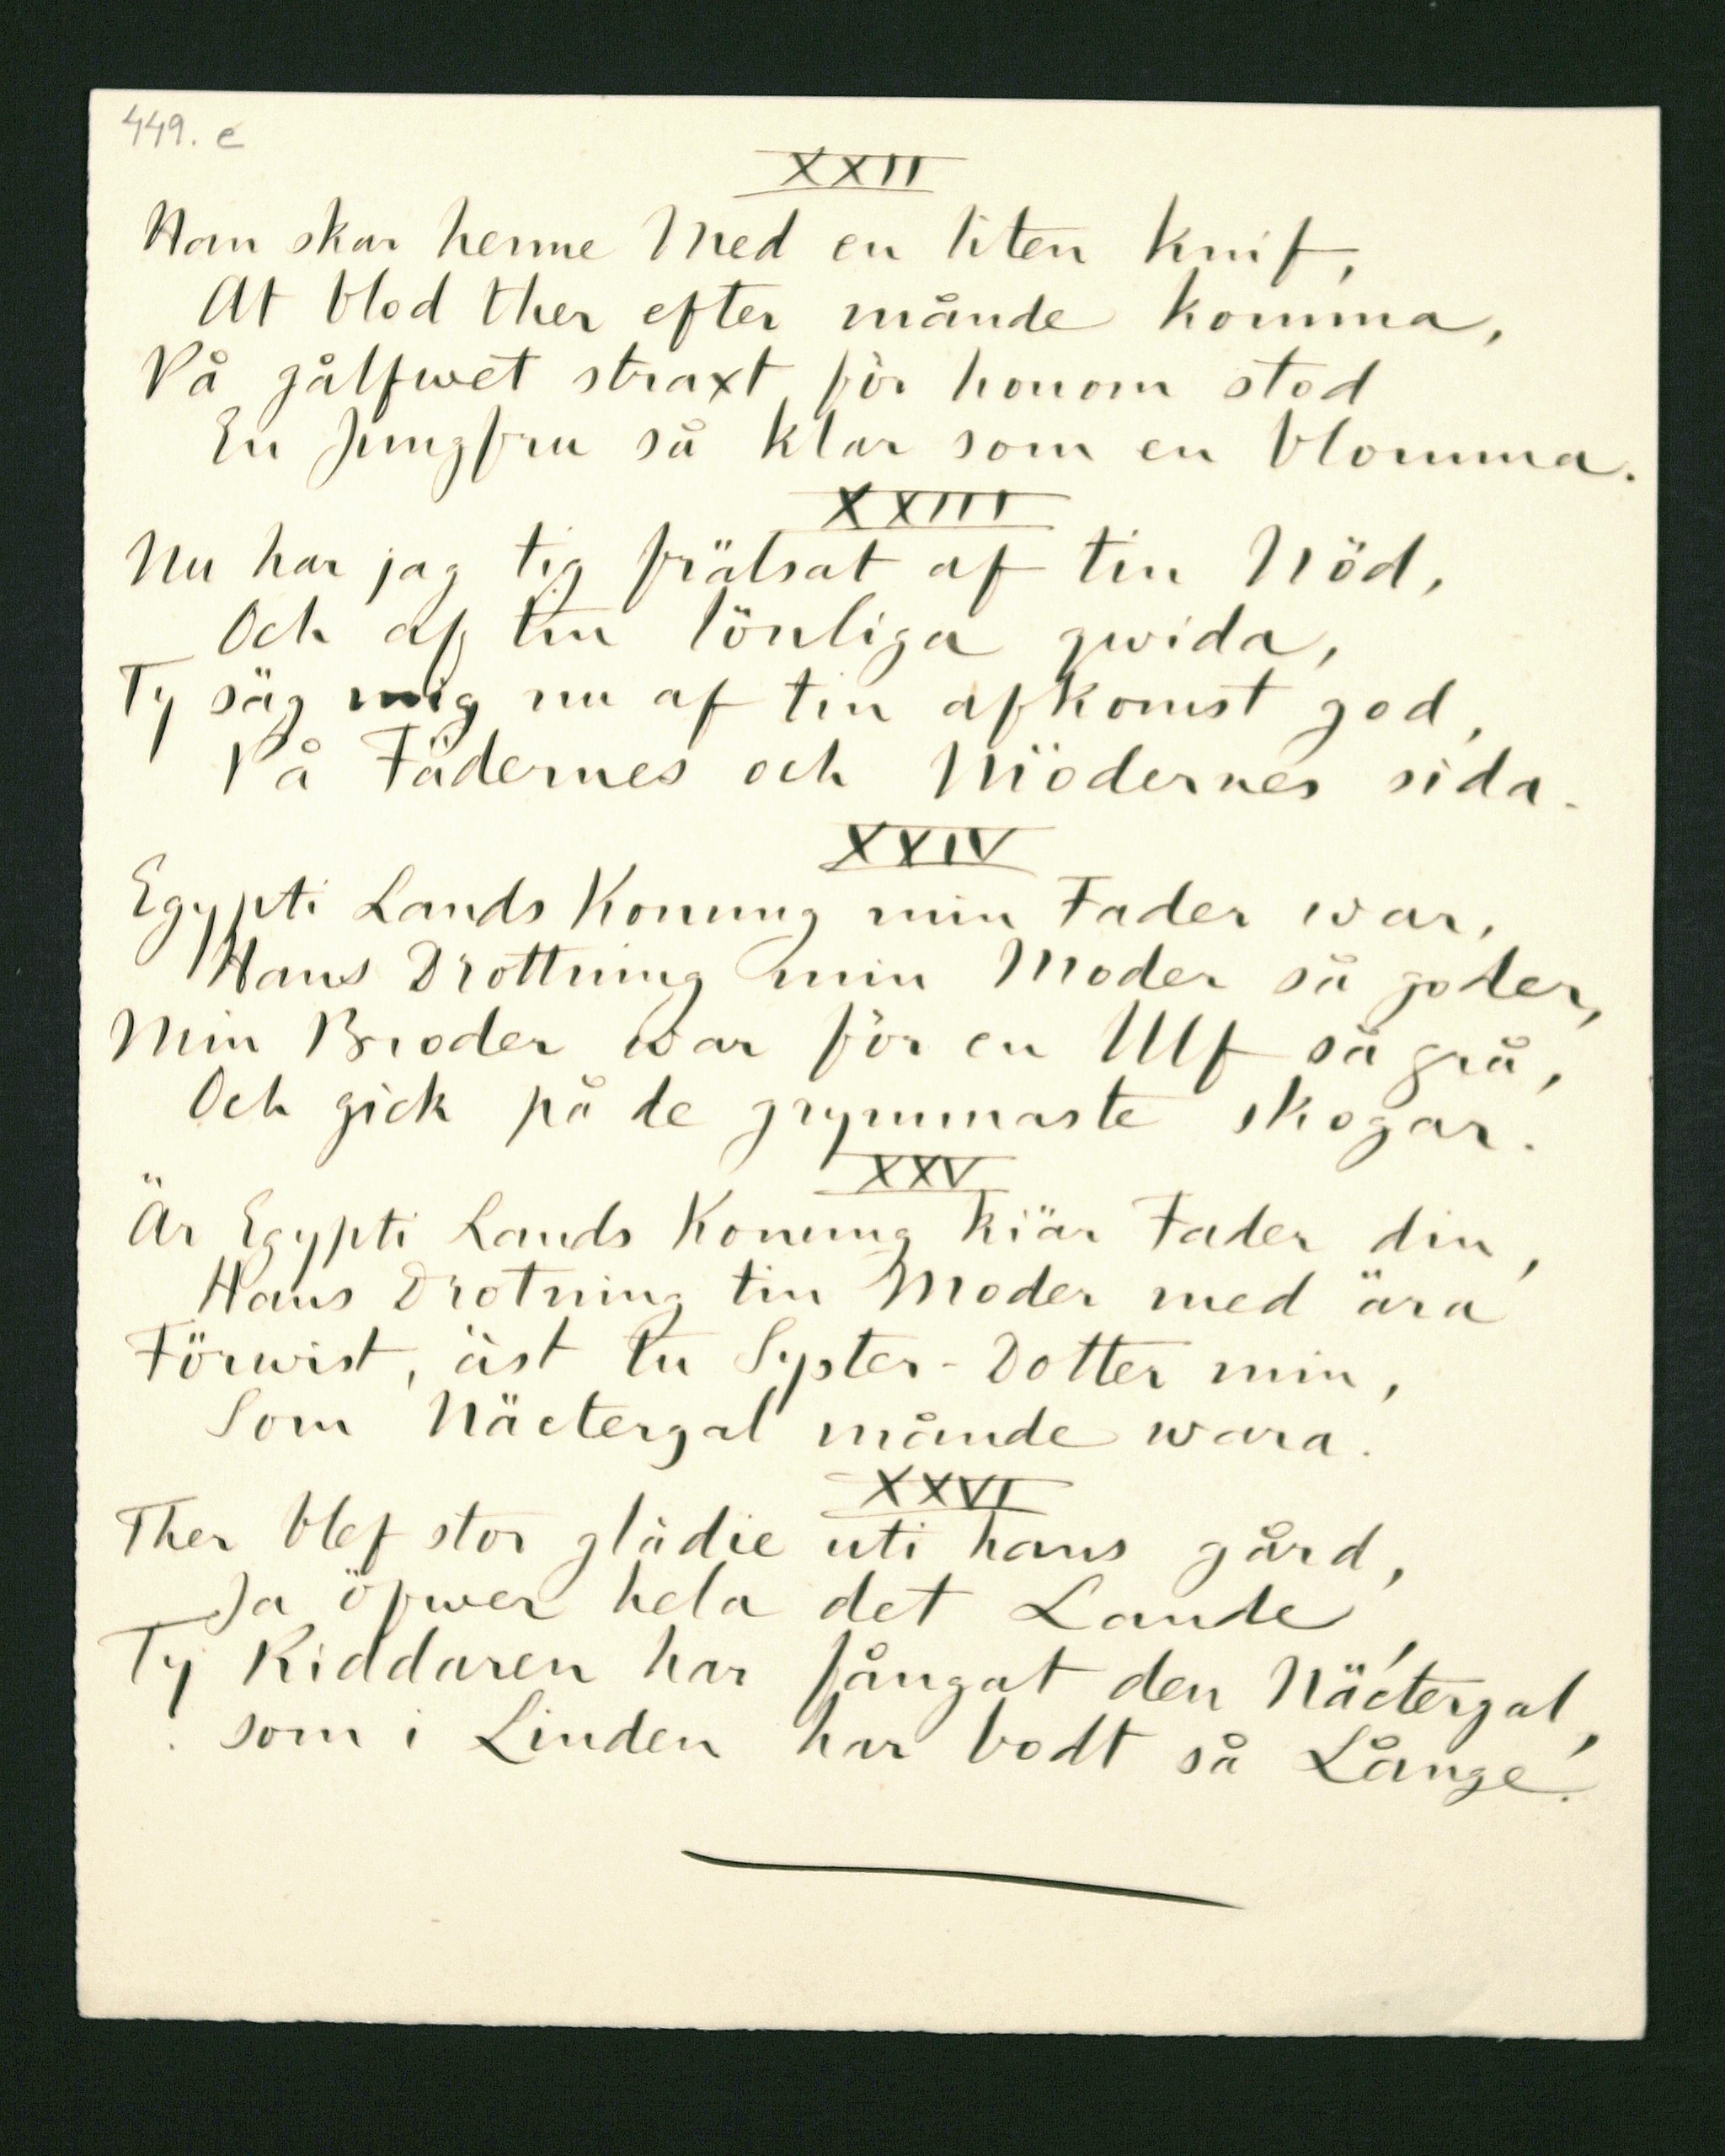 449. e
XXII
Han skar henne Med en liten knif,
At blod ther efter månde komma,
På gålfwet straxt för honom stod
En Jungfru så klar som en blomma.
XXIII
Nu har jag tig frälsat af tin Nöd,
Och af tin lönliga qwida,
Ty säg mig nu af tin afkomst god,
På Fädernes och Mödernes sida.
XXIV
Egypti Lands Konung min Fader war,
Hans Drottning min Moder så goder,
Min Broder war för en Ulf så grå,
Och gick på de grymmaste skogar.
XXV
Är Egypti Lands Konung kiär Fader din,
Hans Drotning tin Moder med ära
Förwist, äst tu Syster-Dotter min,
Som Näctergal månde wara.
XXVI
Ther blef stor glädie uti hans gård,
Ja öfwer hela det Lande,
Ty Riddaren har fångat den Näctergal,
som i Linden har bodt så Långe.